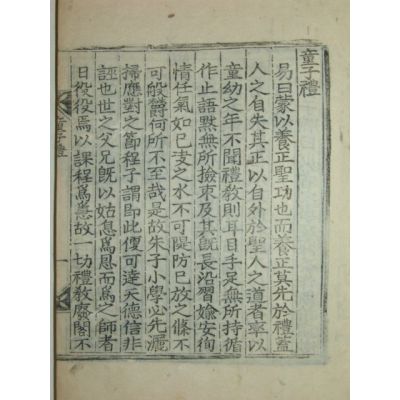 童子禮
易曰蒙以養正聖功也而養正莫先於禮蓋
人之自失其正以自外於聖人之道者率以
童幼之年不聞禮敎則耳目手足無所持循
作止語黙無所撿束及其旣長沿習婾安徇
情任氣如已決之水不可隄防已放之條不
可般欝何所不至哉是故朱子小學必先灑
掃應對之節程子謂即此便可達天德信非
誣也世之父兄旣以姑息爲恩而爲之師者
日役役焉以課程爲急故一切禮敎廢閣不
童子禮 一